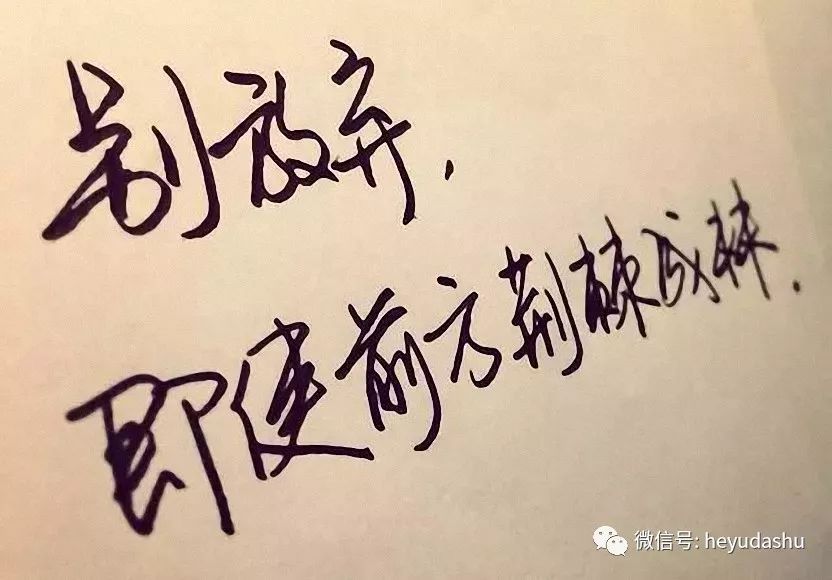 别放弃.
即使前方荆棘成林.
微信号: heyudashu